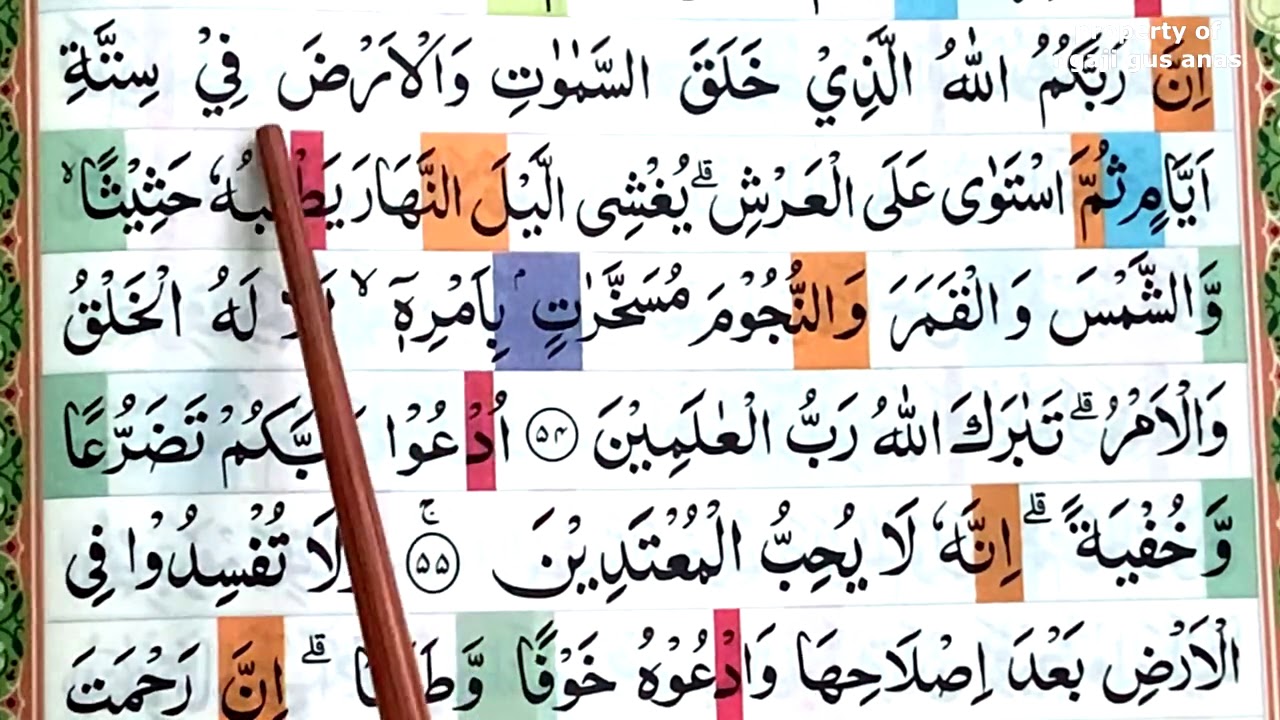 property of
ngaji gus anas
اِنَّ رَبَّكُمُ اللّٰهُ الَّذِيْ خَلَقَ السَّمٰوٰتِ وَالْاَرْضَ فِيْ سِتَّةِ
اَيَّامٍ ثُمَّ اسْتَوٰى عَلَى الْعَرْشِۗ يُغْشِى الَّيْلَ النَّهَارَ يَطْلُبُهٗ حَثِيْثًاۙ
وَّالشَّمْسَ وَالْقَمَرَ وَالنُّجُوْمَ مُسَخَّرٰتٍۢ بِاَمْرِهٖٓ ۙ اَلَا لَهُ الْخَلْقُ
وَالْاَمْرُۗ تَبٰرَكَ اللّٰهُ رَبُّ الْعٰلَمِيْنَ ۝٥٤ اُدْعُوْا رَبَّكُمْ تَضَرُّعًا
وَّخُفْيَةًۗ اِنَّهٗ لَا يُحِبُّ الْمُعْتَدِيْنَۚ ۝٥٥ وَلَا تُفْسِدُوْا فِى
الْاَرْضِ بَعْدَ اِصْلَاحِهَا وَادْعُوْهُ خَوْفًا وَّطَمَعًاۗ اِنَّ رَحْمَتَ